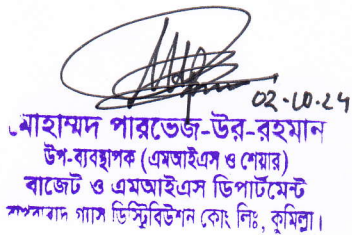 02-10-24
মোহাম্মদ পারভেজ-উর-রহমান
উপ-ব্যবস্থাপক (এমআইএস ও শেয়ার)
বাজেট ও এমআইএস ডিপার্টমেন্ট
গ্যাস ডিস্ট্রিবিউশন কোং লিঃ, কুমিল্লা।